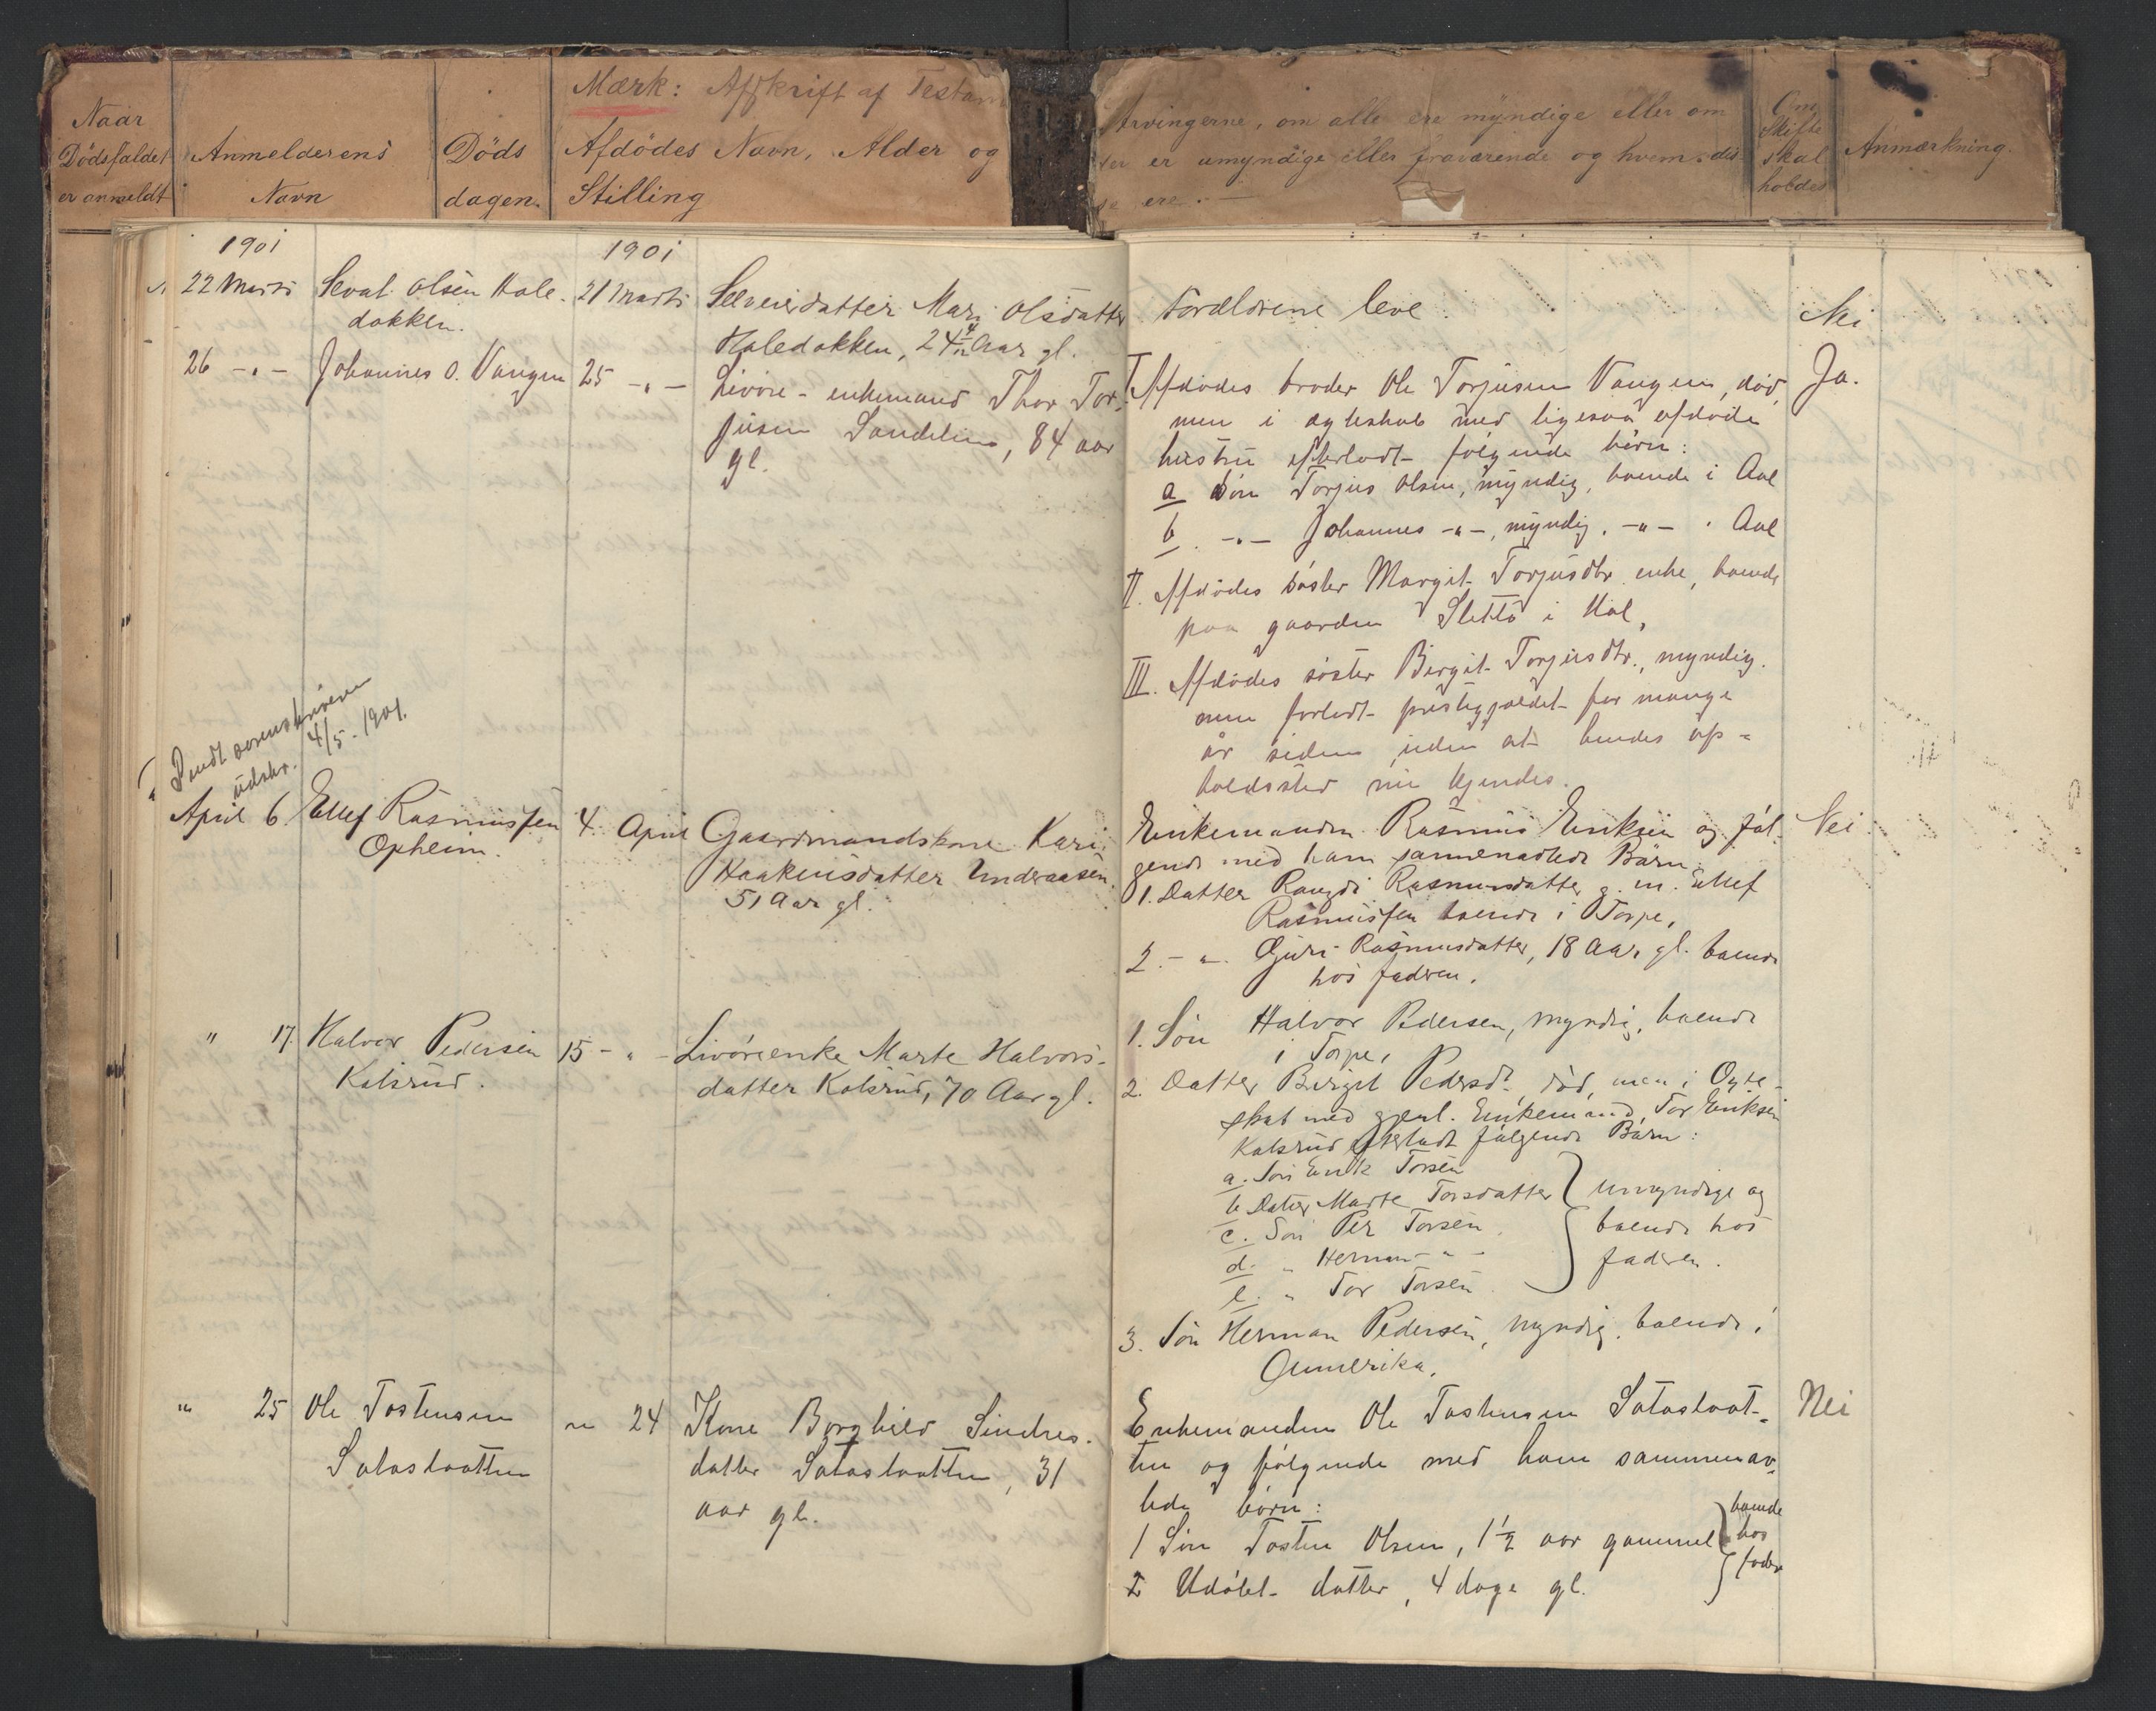 Naar
Dödsfaldet
er anmeldt
Anmelderens
Navn
Döds
dagen.
Mærk: Afskrift af Testam
Afdödes Navn, Alder og
Stilling
Arvingerne, om alle ere myndige eller om
er umyndige eller fraværende og hvem dis
se ere. —
Om
Skifte
skal
holdes
Anmærkning.
1901
1901
22 Marts
Seval Olsen Hole-
dokken.
21 Marts
Selveierdatter Mari Olsdatter
Holedokken, 24 4/12 Aar gl.
Forældrene leve
Nei
26 -„-
Johannes O. Vangen
25 -„-
Livöre- enkemand Thor Tor-
jusen Sandelien, 84 aar
gl.
I. Afdödes broder Ole Torjusen Vangen, död,
men i ægteskab med ligesaa afdöde
hustru efterladt følgende börn:
a Sön Torjus Olsen, myndig, boende i Aal
b. -„- Johannes -„-, myndig, -„- Aal
II. Afdödes söster Margit Torjusdtr. enke, boende
paa gaarden Slettö i Hol,
III. Afdödes söster Birgit Torjusdtr., myndig.
men forlodt prestegjældet for mange
år siden uden at hendes op=
holdssted nu kjendes.
Ja.
Sendt sorenskriveren
udskr. 4/5-1901.
April 6.
Ellef Rasmussen
Opheim.
4. April
Gaardmandskone Kari
Haakensdatter Underaasen.
51 Aar gl.
Enkemanden Rasmus Eriksen og föl-
gende med ham sammenavlede Börn
1. Datter Rangdi Rasmusdatter g. m. Ellef
Rasmussen boende i Torpe,
2. -„- Guri Rasmusdatter, 18 Aar gl. boende
hos faderen.
Nei
" 17.
Halvor Pedersen
Kolsrud.
15 - „ -
Livöreenke Marte Halvors-
datter Kolsrud, 70 Aar gl.
1. Sön Halvor Pedersen, myndig, boende
i Torpe,
2. Datter Birgit Pedersd. död, men i Ægte-
skab med gjenl. Enkemand, Tor Eriksen
Kolsrud efterladt følgende Börn:
a. Sön Erik Torsen
b. Datter Marte Torsdatter
c. Sön Per Torsen
d. „ Herman - „ -
e. „ Tor Torsen
umyndige og
boende hos
faderen.
3. Sön Herman Pedersen, myndig, boende i
Ammerika.
" 25
Ole Tostensen
Sataslaatten
" 24
Kone Borghild Sindres-
datter Sataslaatten, 31
aar gl.
Enkemanden Ole Tostensen Sataslaat-
ten og følgende med ham sammenav-
lede börn:
1 Sön Tosten Olsen, 1 1/2 aar gammel
2 Udöbt datter, 4 dage gl.
boende
hos
fader
Nei